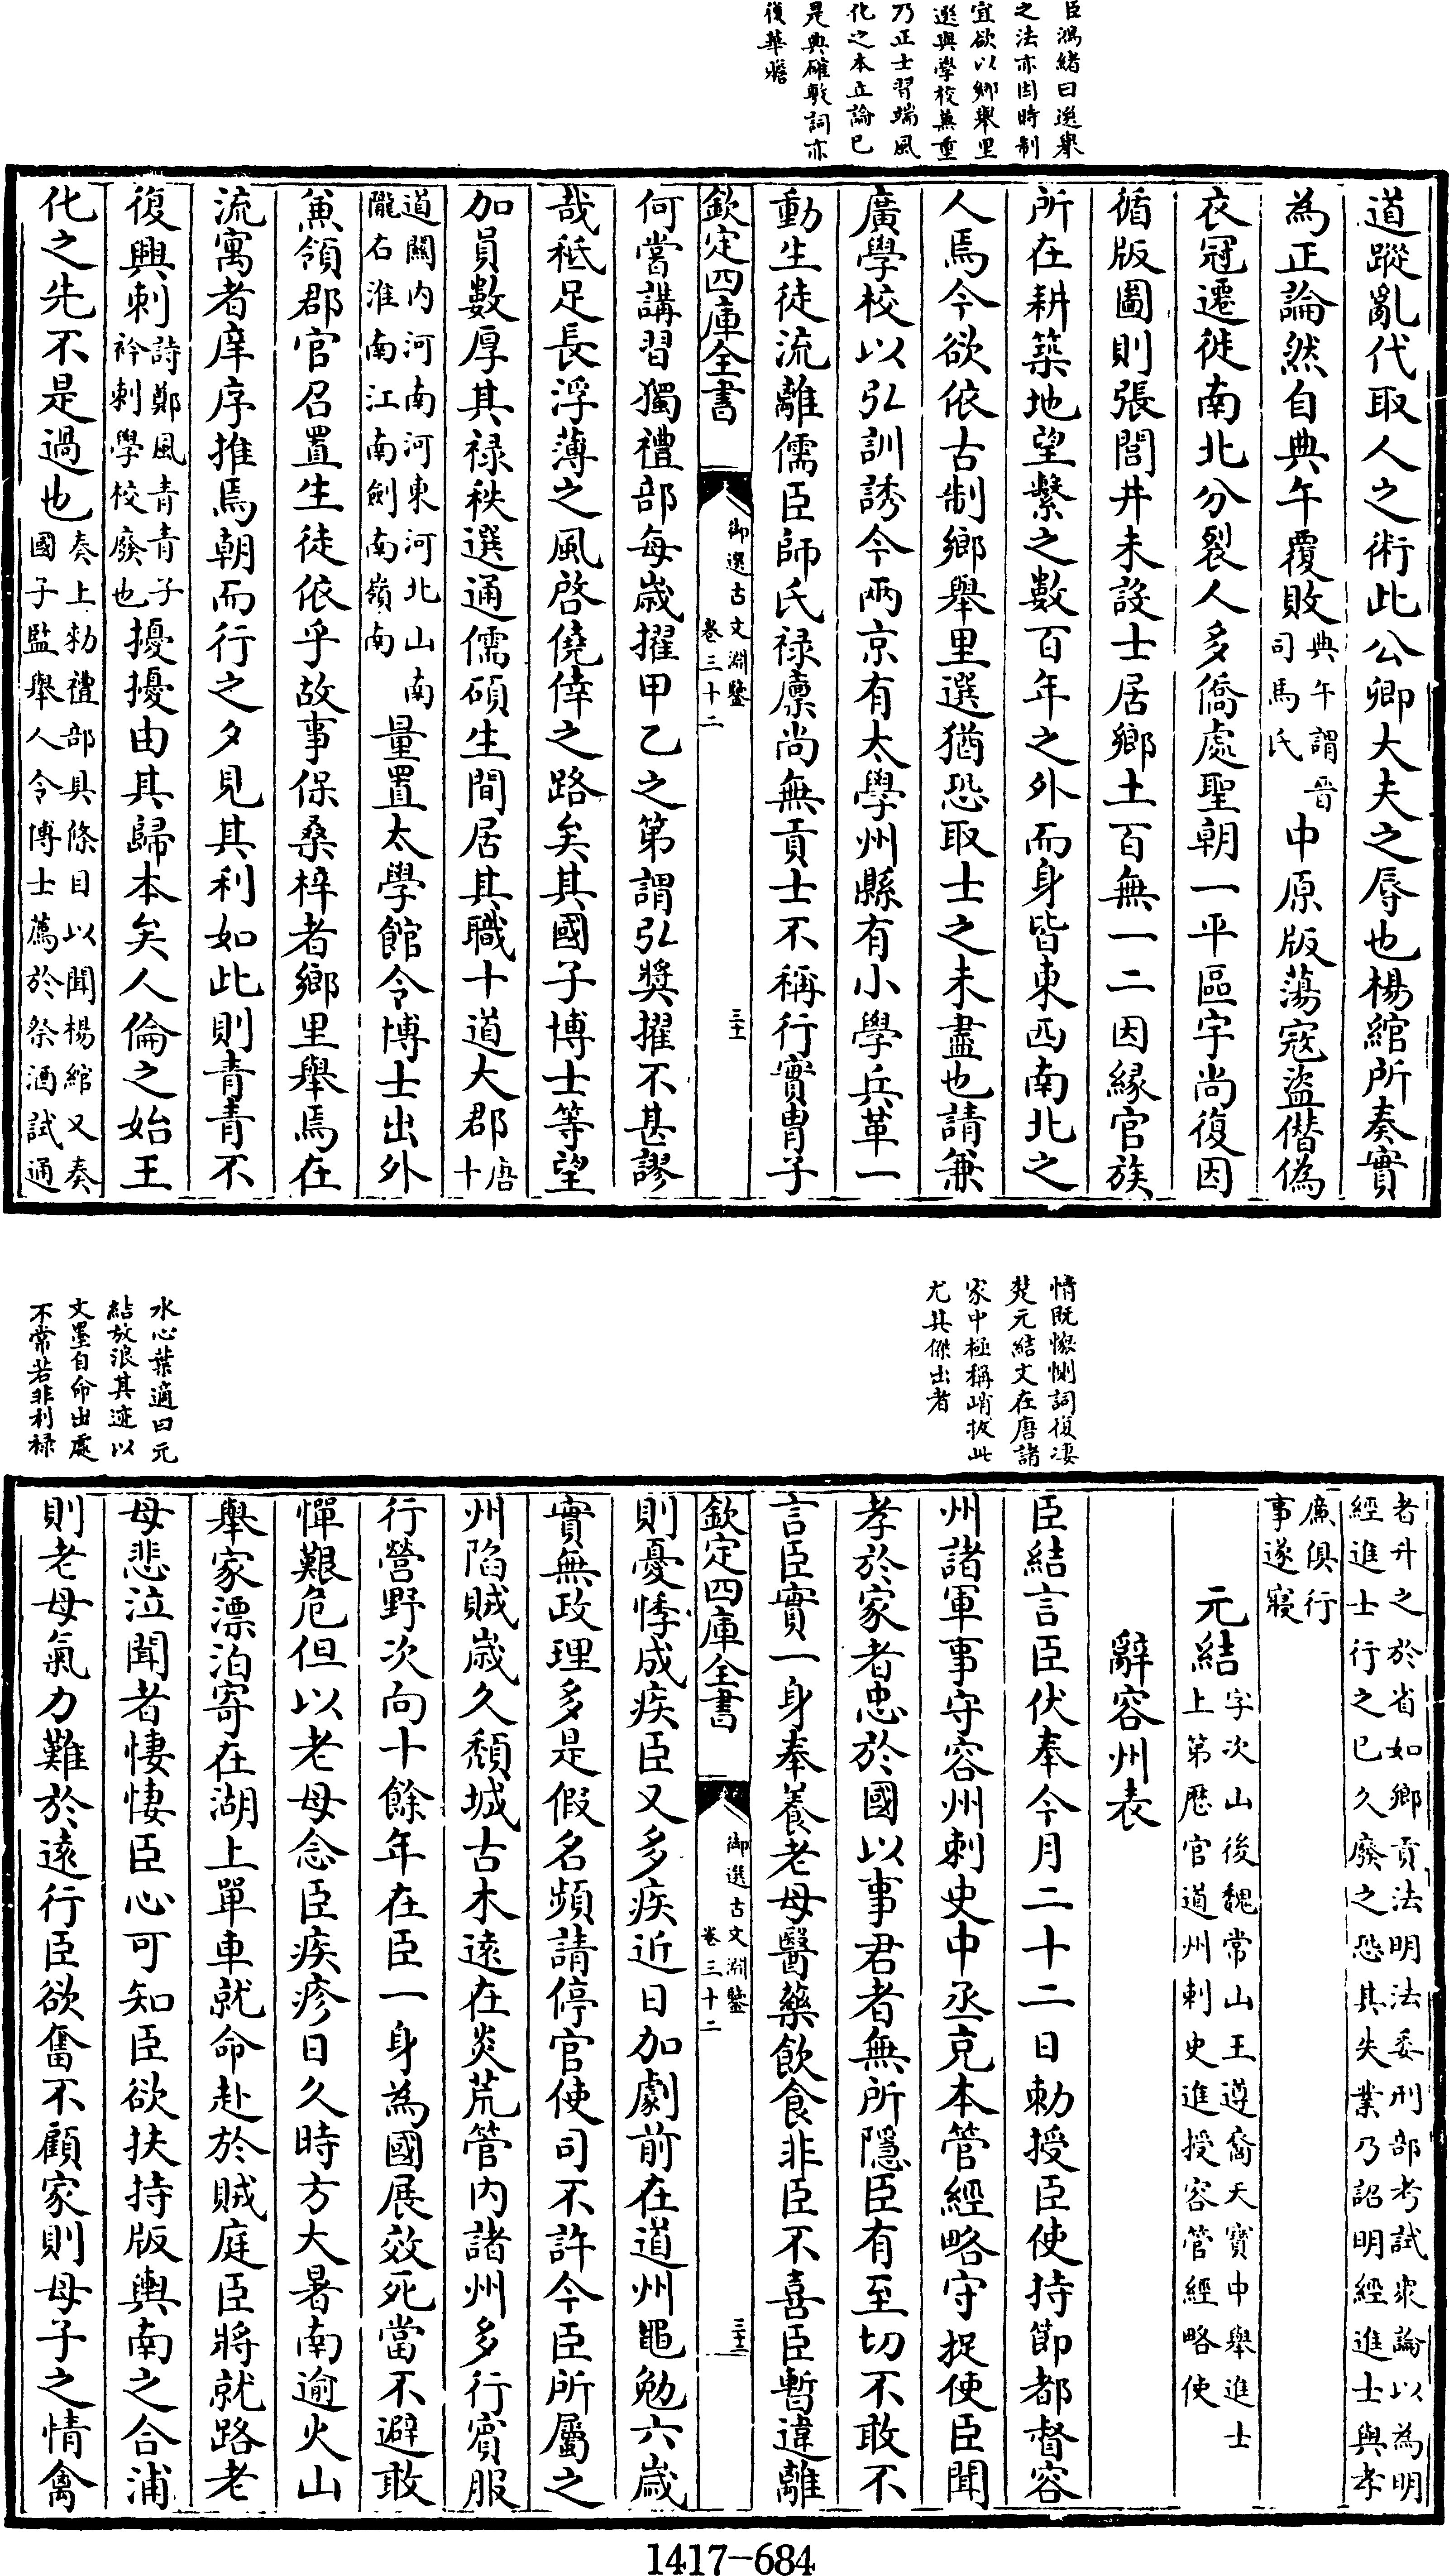 臣鴻緒曰選舉
之法亦因時制
宜欲以鄉舉里
選與學校兼重
乃正士習端風
化之本正論已
是典確敷詞亦
復華贍
道蹤亂代取人之術此公卿大夫之辱也楊綰所奏實
為正論然自典午覆敗典午謂晉
司馬氏中原版蕩寇盜僭偽
衣冠遷徙南北分裂人多僑處聖朝一平區宇尚復因
循版圖則張閭井未設士居鄉土百無一二因緣官族
所在耕築地望繫之數百年之外而身皆東西南北之
人焉今欲依古制鄉舉里選猶恐取士之未盡也請兼
廣學校以弘訓誘今兩京有太學州縣有小學兵革一
動生徒流離儒臣師氏祿廩尚無貢士不稱行實胄子
欽定四庫全書
御選古文淵鑒
卷三十二
三十一
何嘗講習獨禮部每歲擢甲乙之第謂弘獎擢不甚謬
哉秪足長浮薄之風啓僥倖之路矣其國子博士等望
加員數厚其祿秩選通儒碩生間居其職十道大郡唐
十
道關內河南河東河北山南
隴右淮南江南劍南嶺南量置太學館令博士出外
兼領郡官召置生徒依乎故事保桑梓者鄉里舉焉在
流寓者庠序推焉朝而行之夕見其利如此則青青不
復興刺詩鄭風青青子
衿刺學校廢也擾擾由其歸本矣人倫之始王
化之先不是過也奏上勅禮部具條目以聞楊綰又奏
國子監舉人令博士薦於祭酒試通
情既懇惻詞復凄
楚元結文在唐諸
家中極稱峭拔此
尤其傑出者
水心葉適曰元
結放浪其迹以
文墨自命出處
不常若非利祿
者升之於省如鄉貢法明法委刑部考試衆論以為明
經進士行之已久廢之恐其失業乃詔明經進士與孝
廉俱行
事遂寢
元結字次山後魏常山王遵裔天寶中舉進士
上第歷官道州刺史進授容管經略使
辭容州表
臣結言臣伏奉今月二十二日勅授臣使持節都督容
州諸軍事守容州刺史中丞充本管經略守捉使臣聞
孝於家者忠於國以事君者無所隱臣有至切不敢不
言臣實一身奉養老母醫藥飲食非臣不喜臣暫違離
欽定四庫全書
御選古文淵鑒
卷三十二
三十二
則憂悸成疾臣又多疾近日加劇前在道州黽勉六歲
實無政理多是假名頻請停官使司不許今臣所屬之
州陷賊歲久頹城古木遠在炎荒管內諸州多行賓服
行營野次向十餘年在臣一身為國展效死當不避敢
憚艱危但以老母念臣疾疹日久時方大暑南逾火山
舉家漂泊寄在湖上單車就命赴於賊庭臣將就路老
母悲泣聞者悽悽臣心可知臣欲扶持版輿南之合浦
則老母氣力難於遠行臣欲奮不顧家則母子之情禽
1417-684